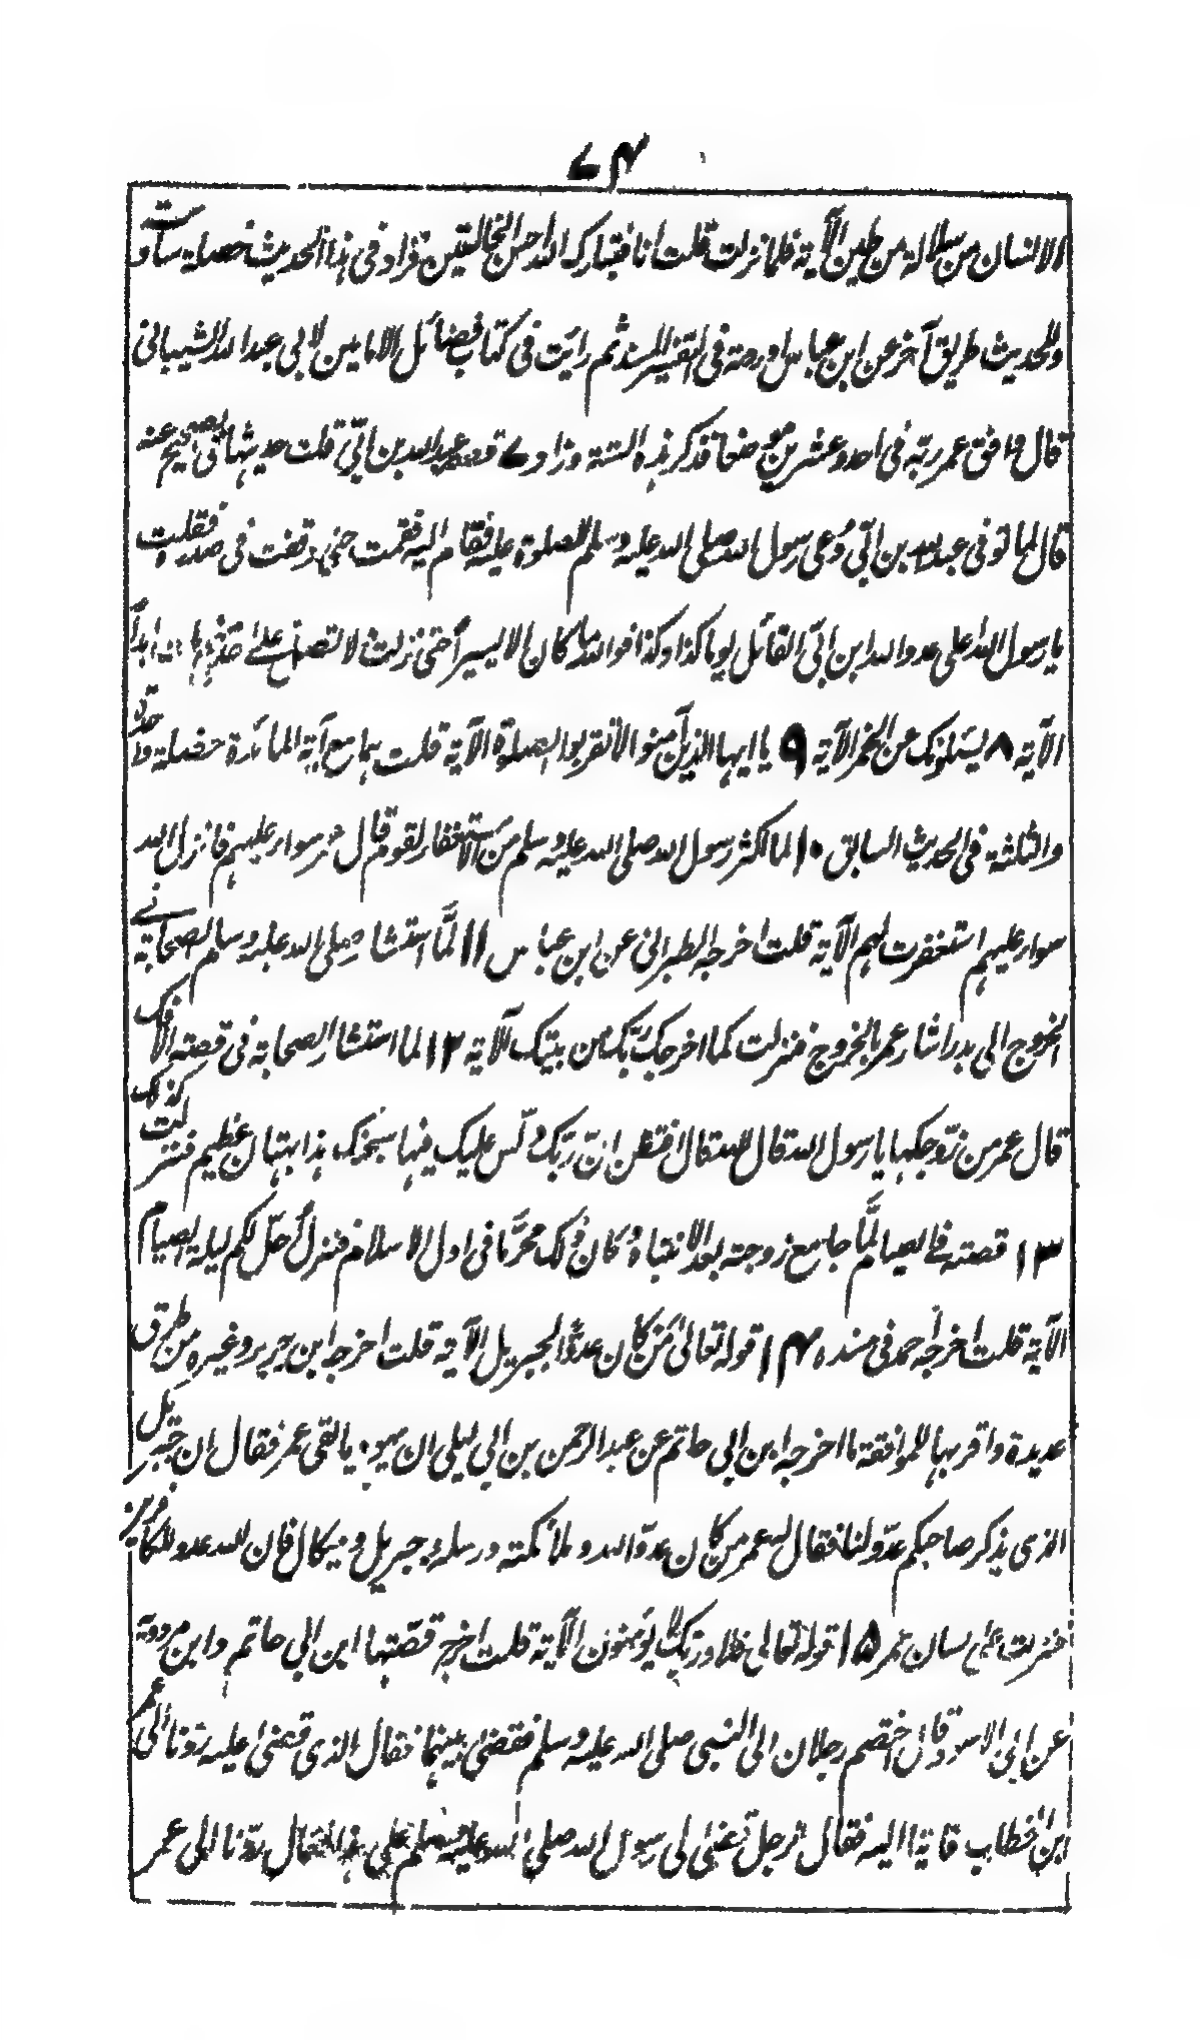 ۷۴
الانسان من سلالة من طين الآية فلما نزلت قلت انا فتبارك الله احسن الخالقين فزاد في هذا الحديث خصلة سادسة
وللحديث طريق آخر عن ابن عباس اوردته في التفسير المسند ثم رايت في كتاب فضائل الامامين لابي عبد الله الشيباني
قال وافق عمر ربّه في احد وعشرين موضعا فذكر هذه الستة وزاد ۷ قصة عبد الله بن ابيّ قلت حديثها في الصحيح عنه
قال لما توفى عبد الله بن ابيّ دُعى رسول الله صلى الله عليه وسلم للصلوة عليه فقام اليه فقمت حتى وقفت في صدره فقلت
يا رسول الله اعلى عدو الله ابن ابيّ القائل يوما كذا وكذا فوالله ما كان الا يسيرا حتى نزلت لا تصل على احد منهم مات ابداً
الآية ۸ يسئلونك عن الخمر الآية ۹ يا ايها الذين آمنوا لا تقربوا الصلوة الآية قلت هما مع آية المائدة خصلة واحدة
والثلثة في الحديث السابق ۱۰ لما اكثر رسول الله صلى الله عليه وسلم من الاستغفار لقوم قال عمر سواء عليهم فانزل الله
سواء عليهم استغفرت لهم الآية قلت اخرجه الطبراني عن ابن عباس ۱۱ لمّا استشار صلى الله عليه وسلم الصحابة في
الخروج الى بدر اشار عمر بالخروج فنزلت كما اخرجك ربّك من بيتك الآية ۱۲ لما استشار الصحابة في قصة الافك
قال عمر من زوّجكها يا رسول الله قال الله تعالى قال افتظن انّ ربّك دلّس عليك فيها سبحنك هذا بهتان عظيم فنزلت كذلك
۱۳ قصته في الصيام لمّا جامع زوجته بعد الانتباه وكان ذلك محرّما في اول الاسلام فنزل اُحلّ لكم ليلة الصيام
الآية قلت اخرجه احمد في مسنده ۱۴ قوله تعالىٰ مَن كان عدوًّا لجبريل الآية قلت اخرجه ابن جرير وغيره من طرق
عديدة واقربها للموافقة ما اخرجه ابن ابي حاتم عن عبد الرحمن بن ابي ليلى ان يهوديا لقى عمر فقال ان جبريل
الذي يذكر صاحبكم عدوّ لنا فقال له عمر من كان عدوّا لله و ملائكته ورسله وجبريل وميكال فان الله عدو للكافرين
فنزلت على لسان عمر ۱۵ قوله تعالى فلا وربّك لا يؤمنون الآية قلت اخرج قصّتها ابن ابي حاتم وابن مردوية
عن ابي الاسود قال اختصم رجلان الى النبي صلى الله عليه وسلم فقضىٰ بينهما فقال الذي قضىٰ عليه ردّنا الى عمر
ابن الخطاب فاتيا اليه فقال الرجل قضىٰ لي رسول الله صلى الله عليه وسلم على هذا فقال ردّنا الى عمر